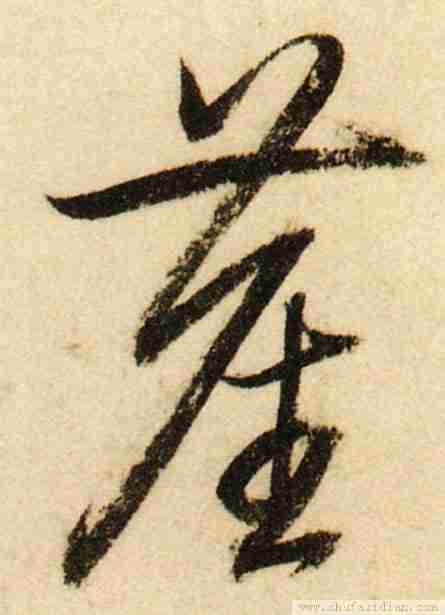 產
www.shufazidian.com